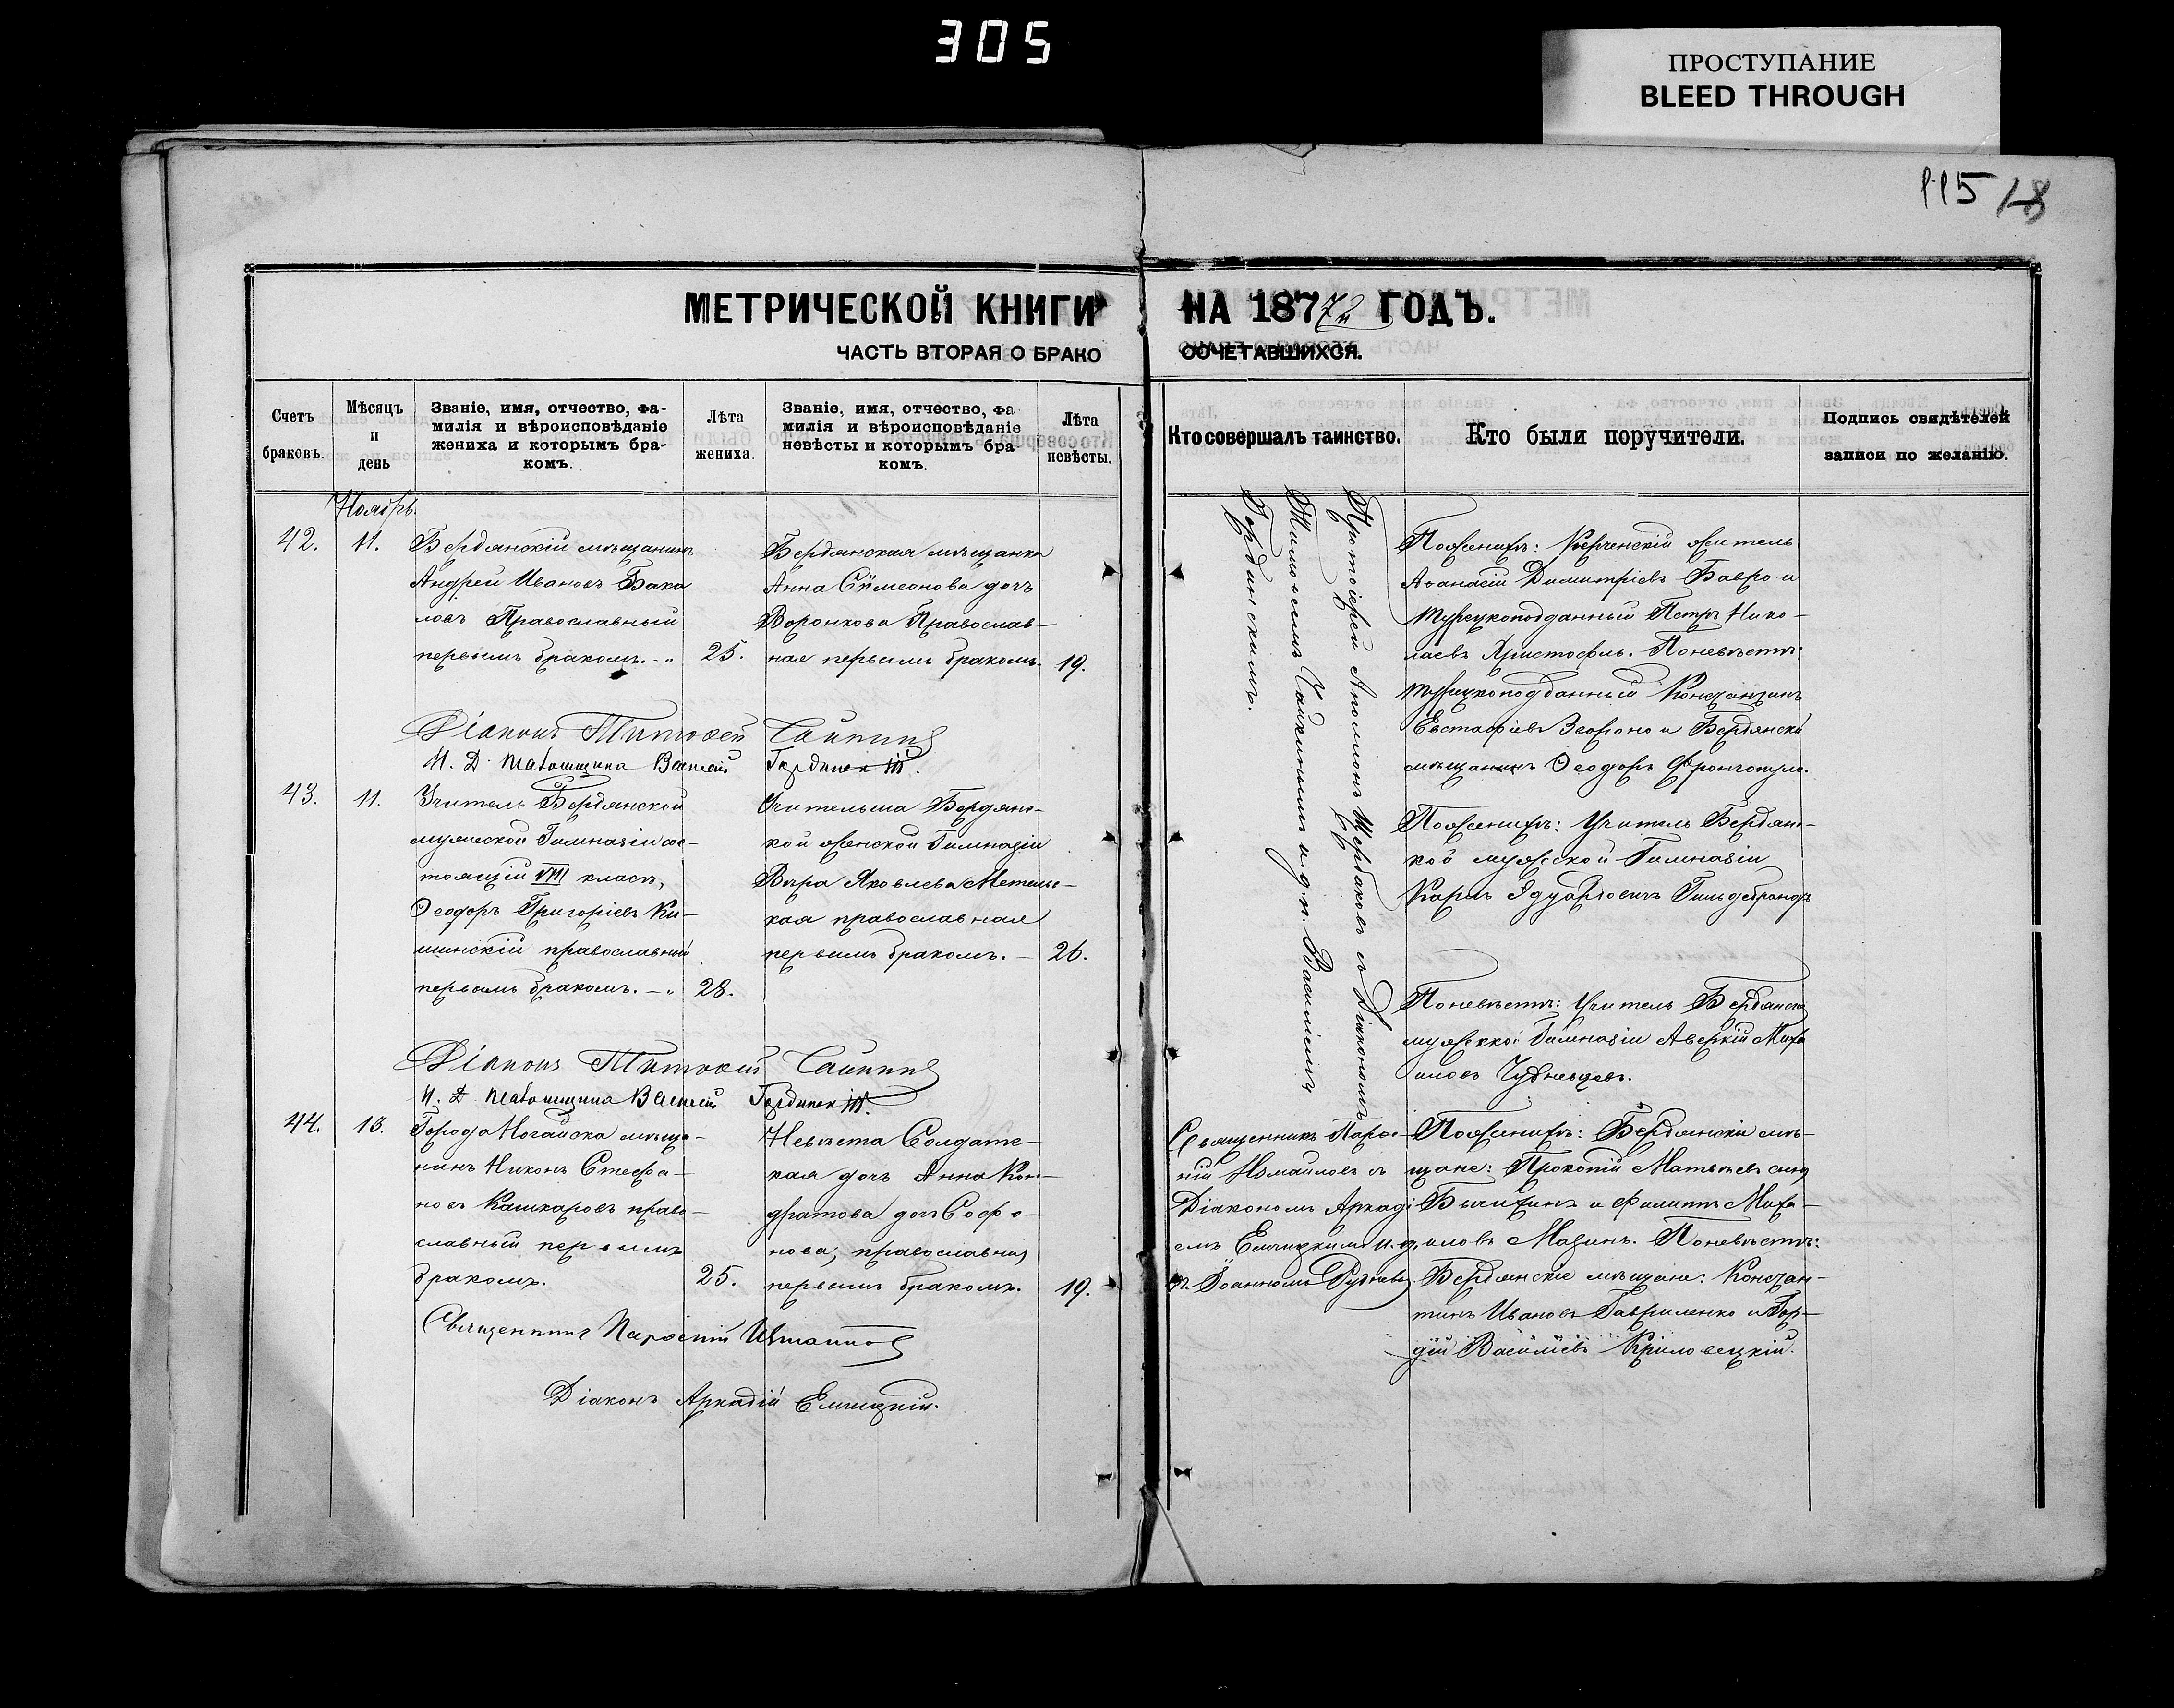 305
ПРОСТУПАНИЕ
BLEED THROUGH
115
МЕТРИЧЕСКОЙ КНИГИ НА 1877 ГОДЪ.
ЧАСТЬ ВТОРАЯ О БРАКОСОЧЕТАВШИХСЯ.
Счетъ браковъ.
Мѣсяцъ и день
Званіе, имя, отчество, фа-
милія и вѣроисповѣданіе
жениха и которымъ бра-
комъ.
Лѣта жениха.
Званіе, имя, отчество, фа
милія и вѣроисповѣданіе
невѣсты и которымъ бра-
комъ.
Лѣта невѣсты.
Кто совершалъ таинство.
Кто были поручители.
Подпись свидѣтелей
записи по желанію.
Ноябрь.
42.
11.
Бердянскій мѣщанинъ
Андрей Ивановъ Бака
ловъ Православный
первымъ бракомъ.
25.
Бердянская мѣщанка
Анна Сѵмеонова дочь
Воронкова Православ-
ная первымъ бракомъ.
19.
Протоіерей Аполлонъ Щербаковъ съ Діакономъ
Тимоѳеемъ Чайкинымъ и. д. п. Василіемъ
Гординскимъ.
По женихѣ: Керченскій житель
Аѳанасій Димитріевъ Бавро и
турецкоподданный Петръ Нико-
лаевъ Христофъ. По невѣстѣ:
турецкоподданный Константинъ
Евстафіевъ и Бердянскій
мѣщанинъ Ѳеодоръ
Діаконъ Тимоѳей Чайкинъ
И. Д. Псаломщика Василій Гординскій.
43.
11.
Учитель Бердянской
мужской Гимназіи сос-
тоящій VIII класъ,
Ѳеодоръ Григоріевъ Ки-
шинскій православный
первымъ бракомъ.
28.
Учительша Бердянс-
кой женской Гимназіи
Вѣра Яковлева
кая православная
первымъ бракомъ.
26.
По женихѣ: Учитель Бердянс-
кой мужской Гимназіи
Карлъ Эдуардовичъ Гильдебрандъ
По невѣстѣ: Учитель Бердянской
мужской Гимназіи Аверкій Миха
иловъ
Діаконъ Тимоѳей Чайкинъ
И. Д. Псаломщика Василій Гординскій.
44.
13.
Города Ногайска мѣща-
нинъ Никонъ Стефа-
новъ Кашкаровъ право-
славный первымъ
бракомъ.
25.
Невѣста Солдатс-
кая дочь Анна Кон-
дратова дочь Софо-
нова, православная
первымъ бракомъ.
19.
Священникъ Парѳе-
ній Измаиловъ съ
Діакономъ Аркаді
емъ и. д.
п. Іоанномъ Рудневъ.
По женихѣ: Бердянскіе мѣ-
щане: Прокопій Матвѣевъ сынъ
Бычихинъ и Филиппъ Миха-
иловъ Мазинъ. По невѣстѣ:
Бердянскіе мѣщане: Констан-
тинъ Ивановъ Гавриленко и Гор-
дій Василіевъ Криловецкій.
Священникъ Парѳеній Измаиловъ
Діаконъ Аркадій